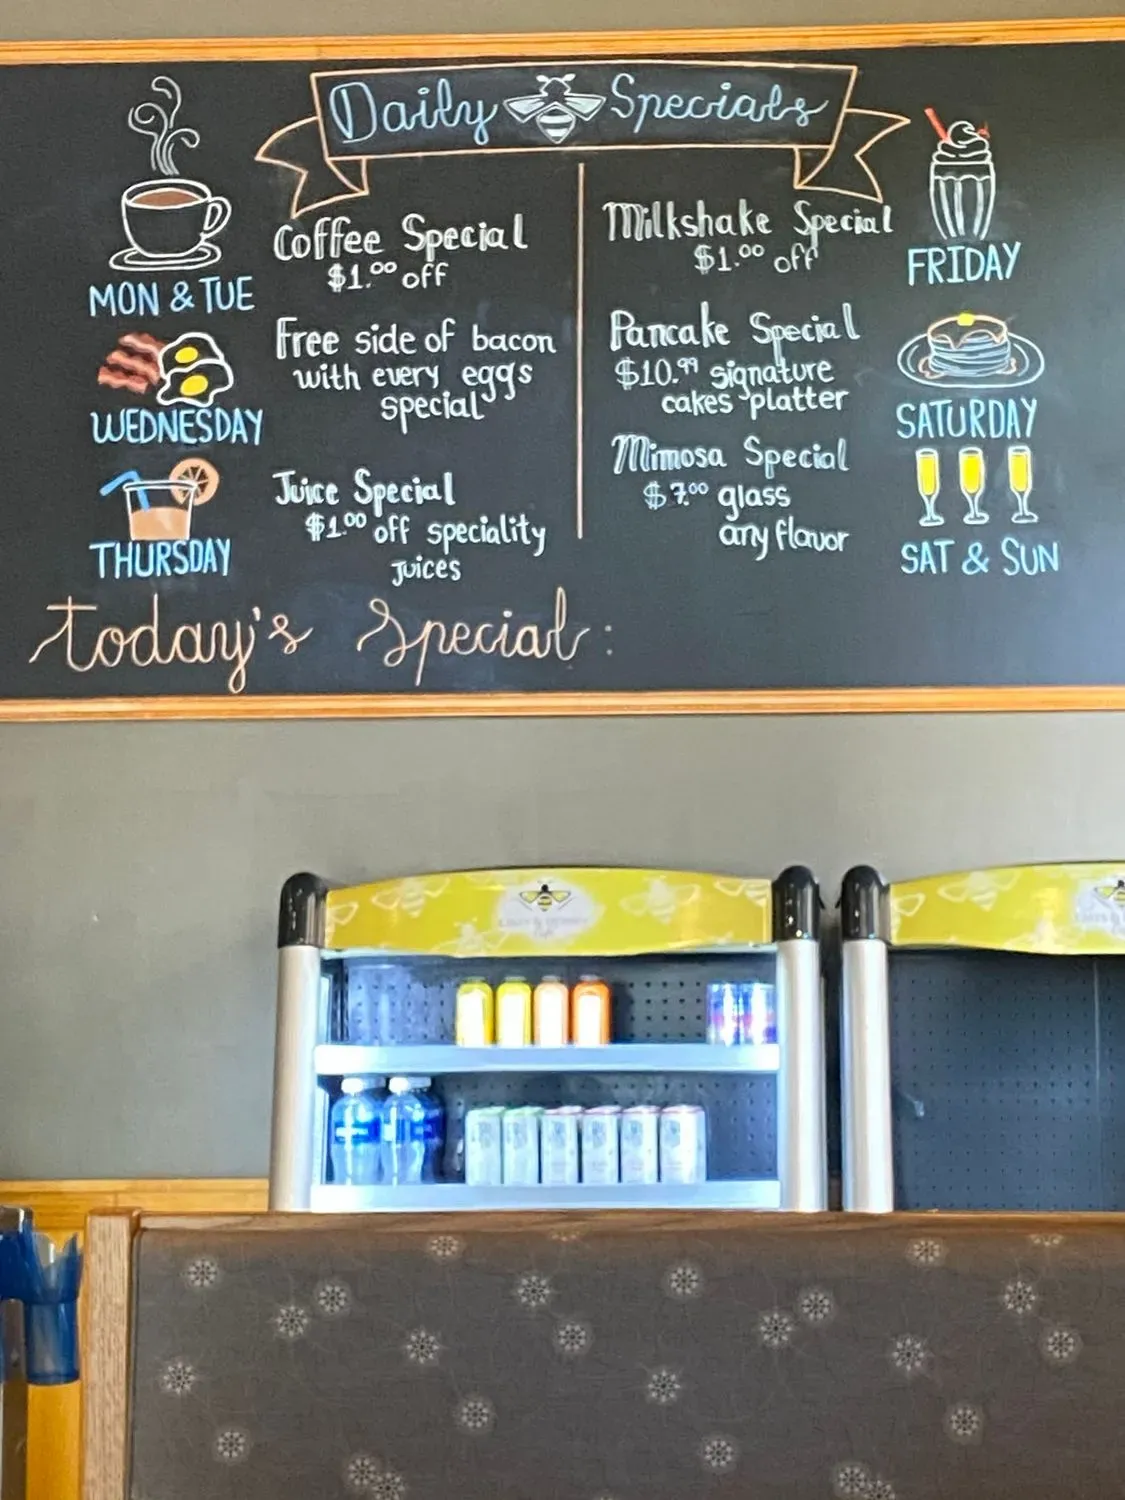 Daily Specials
Coffee Special
$1.00 off
MON & TUE
Free side of bacon
with every eggs
special
WEDNESDAY
Juice Special
$1.00 off speciality
juices
THURSDAY
Milkshake Special
$1.00 off
FRIDAY
Pancake Special
$10.99 signature
cakes platter
SATURDAY
Mimosa Special
$7.00 glass
any flavor
SAT & SUN
Today's Special: